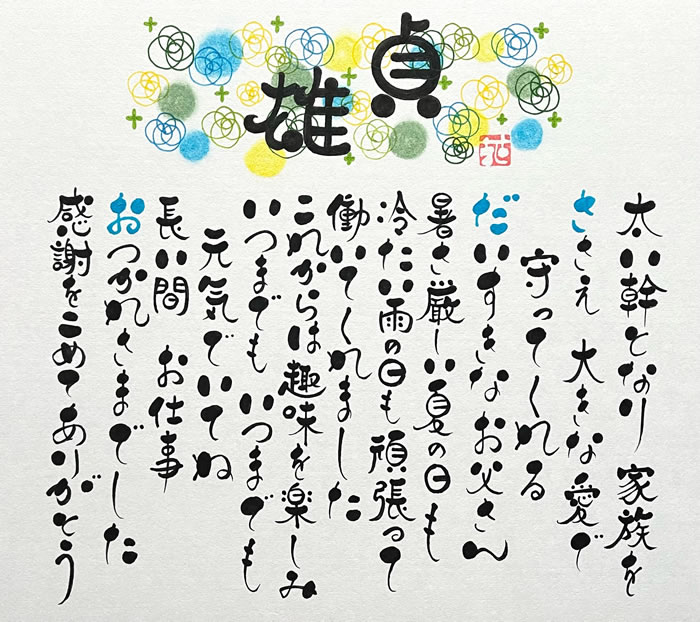 貞雄
太い幹となり 家族を
ささえ 大きな愛で
守ってくれる
だいすきなお父さん
暑さ厳しい夏の日も
冷たい雨の日も頑張って
働いてくれました
これからは趣味を楽しみ
いつまでも いつまでも
元気でいてね
長い間 お仕事
おつかれさまでした
感謝をこめてありがとう